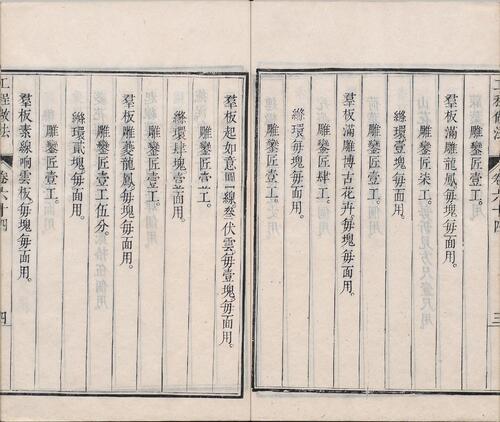 工程做法 卷六十四 三
羣板滿雕龍鳳每塊每面用。
雕鑾匠柒工。
縧環壹塊每面用。
雕鑾匠壹工。
羣板滿雕博古花卉每塊每面用。
雕鑾匠肆工。
縧環每塊每面用。
羣板起如意線叄伏雲每壹塊每面用。
雕鑾匠壹工。
縧環肆塊壹面用。
雕鑾匠壹工。
羣板雕夔龍鳳每塊每面用。
雕鑾匠壹工伍分。
縧環貳塊每面用。
雕鑾匠壹工。
羣板素線响雲板每塊每面用。
工程做法 卷六十四 四